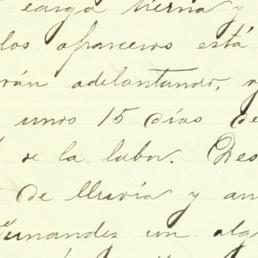 carga tierna y
los aparceros está
rán adelantando,
unos 15 dias de
de la labor. Des
de lluvia y an
Fernandez un alg